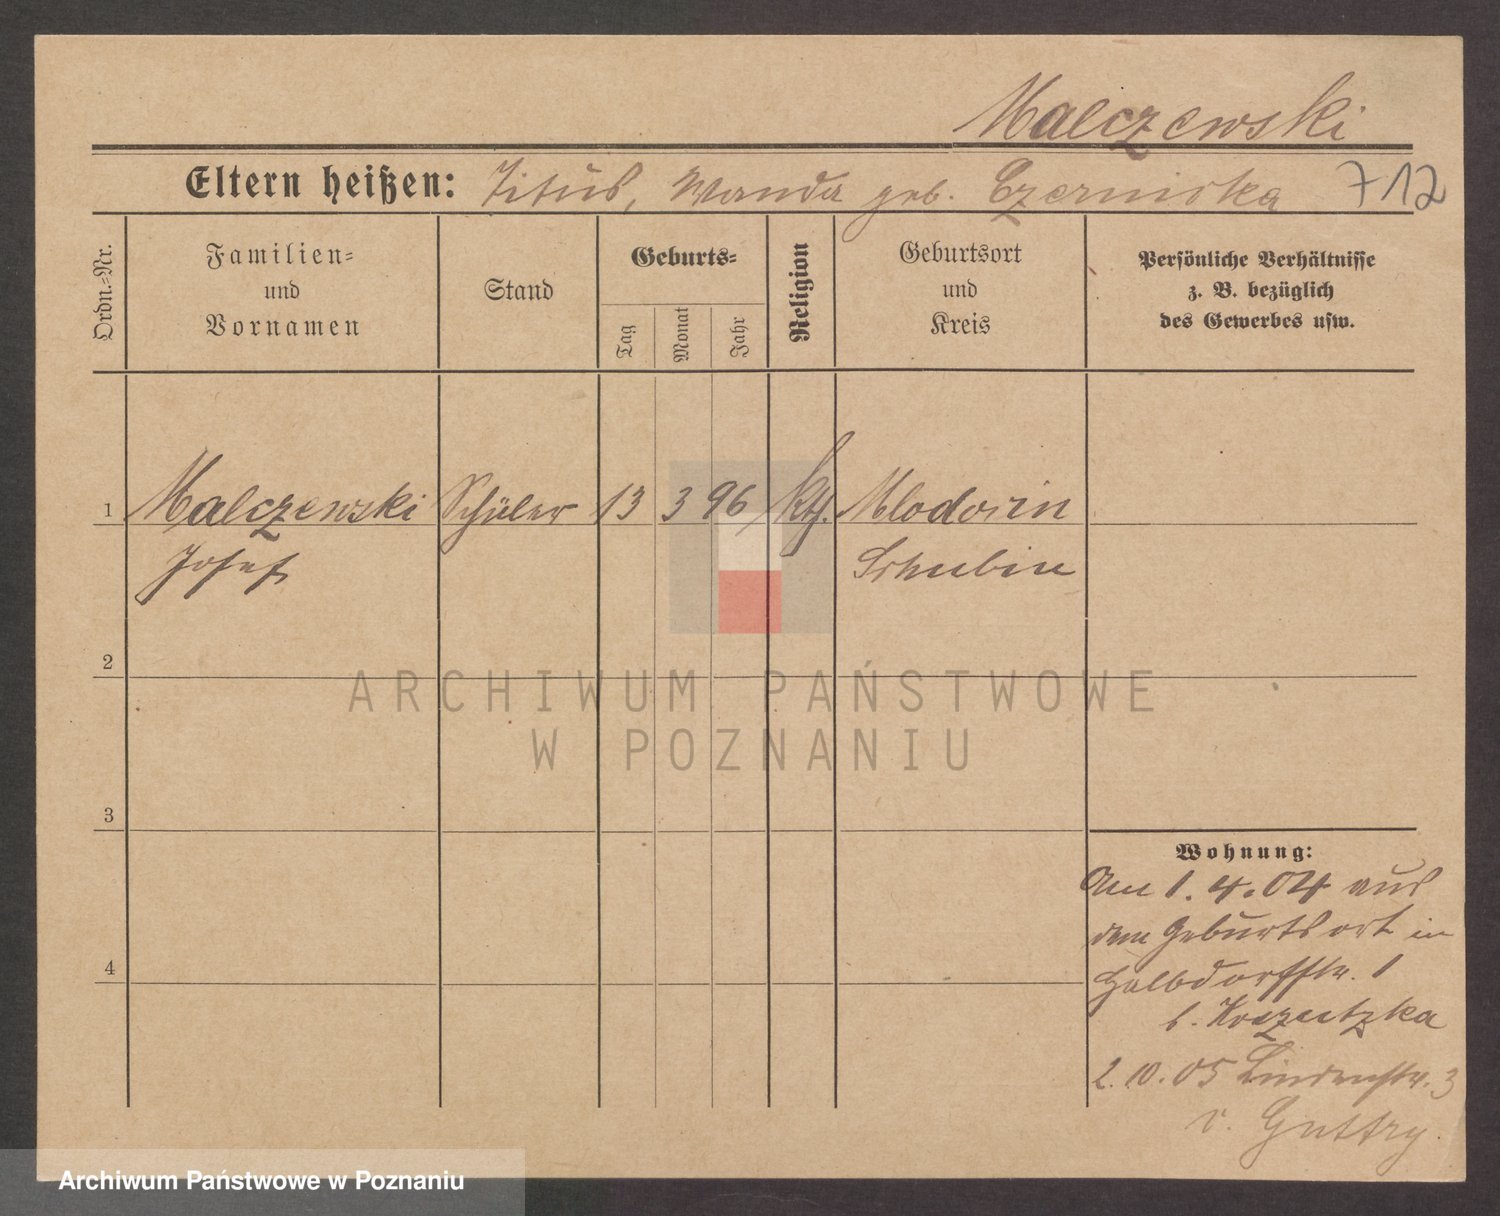 Malczewski
Eltern heißen: Titus, Wanda geb. Czerniska 712
Ordn.=Nr.
Familien=
und
Vornamen
Stand
Geburts=
Tag
Monat
Jahr
Religion
Geburtsort
und
Kreis
Persönliche Verhältnisse
z. B. bezüglich
des Gewerbes usw.
1 Malczewski Schüler 13 3 96 kth. Mlodocin
Josef Schubin
2
ARCHIWUM PAŃSTWOWE
W POZNANIU
3
Wohnung:
Am 1.4.04 aus
dem Geburtsort in
Halbdorfstr. 1
b. Koszutzka
4
2.10.05 Lindenstr. 3
v. Guttry.
Archiwum Państwowe w Poznaniu